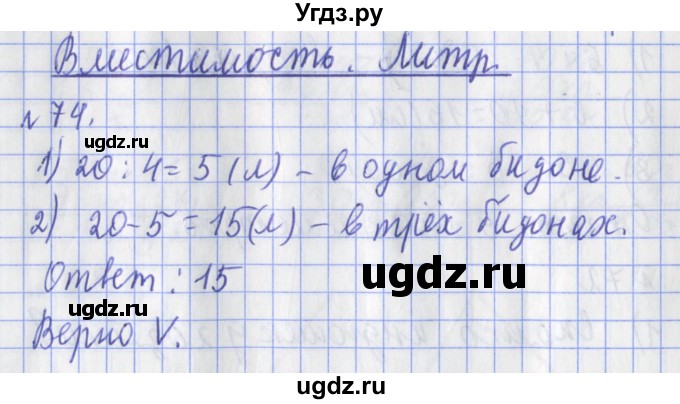 Угдз.ру
Вместимость. Литр.
№74.
ugdz.ru
1) 20:4=5(л) – в одном бидоне.
ugdz.ru
2) 20-5=15(л) – в трёх бидонах.
Ответ: 15
ugdz.ru
ugdz.ru
Верно V.
ugdz.ru
ugdz.ru